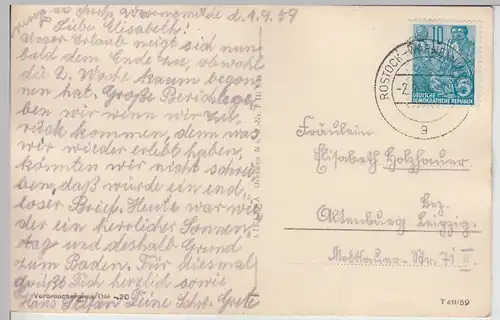 Warnemünde d. 1.9.59
Liebe Elisabeth!
Unser Urlaub neigt sich nun
bald dem Ende zu, obwohl
die 2. Woche kaum begon-
nen hat. Große Berichte ge-
ben wir wenn wir zu-
rück kommen, denn was
wir wieder erlebt haben,
könnten wir nicht schrei-
ben, daß würde ein end-
loser Brief. Heute war wie-
der ein herrlicher Sonnen-
tag und deshalb Grund
zum Baden. Für diesmal
grüßt Dich herzlich sowie
Hans Stefan Deine Schw. Grete
Verbraucherpreis DM -,20
10
5
DEUTSCHE
DEMOKRATISCHE REPUBLIK
ROSTOCK-WARNEMÜNDE
g
Fräulein
Elisabeth Holzhauer
Altenburg Bez. Leipzig
Str. 71 II
T 411/59